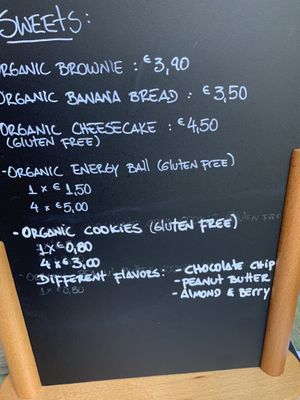 SWEETS:
ORGANIC BROWNIE : €3,90
ORGANIC BANANA BREAD : €3,50
ORGANIC CHEESECAKE : €4,50
(GLUTEN FREE)
- ORGANIC ENERGY BALL (GLUTEN FREE)
1 x € 1.50
4 x €5,00
- ORGANIC COOKIES (GLUTEN FREE)
1 x €0,80
4 x €3,00
DIFFERENT FLAVORS: - CHOCOLATE CHIP
- PEANUT BUTTER
- ALMOND & BERRY